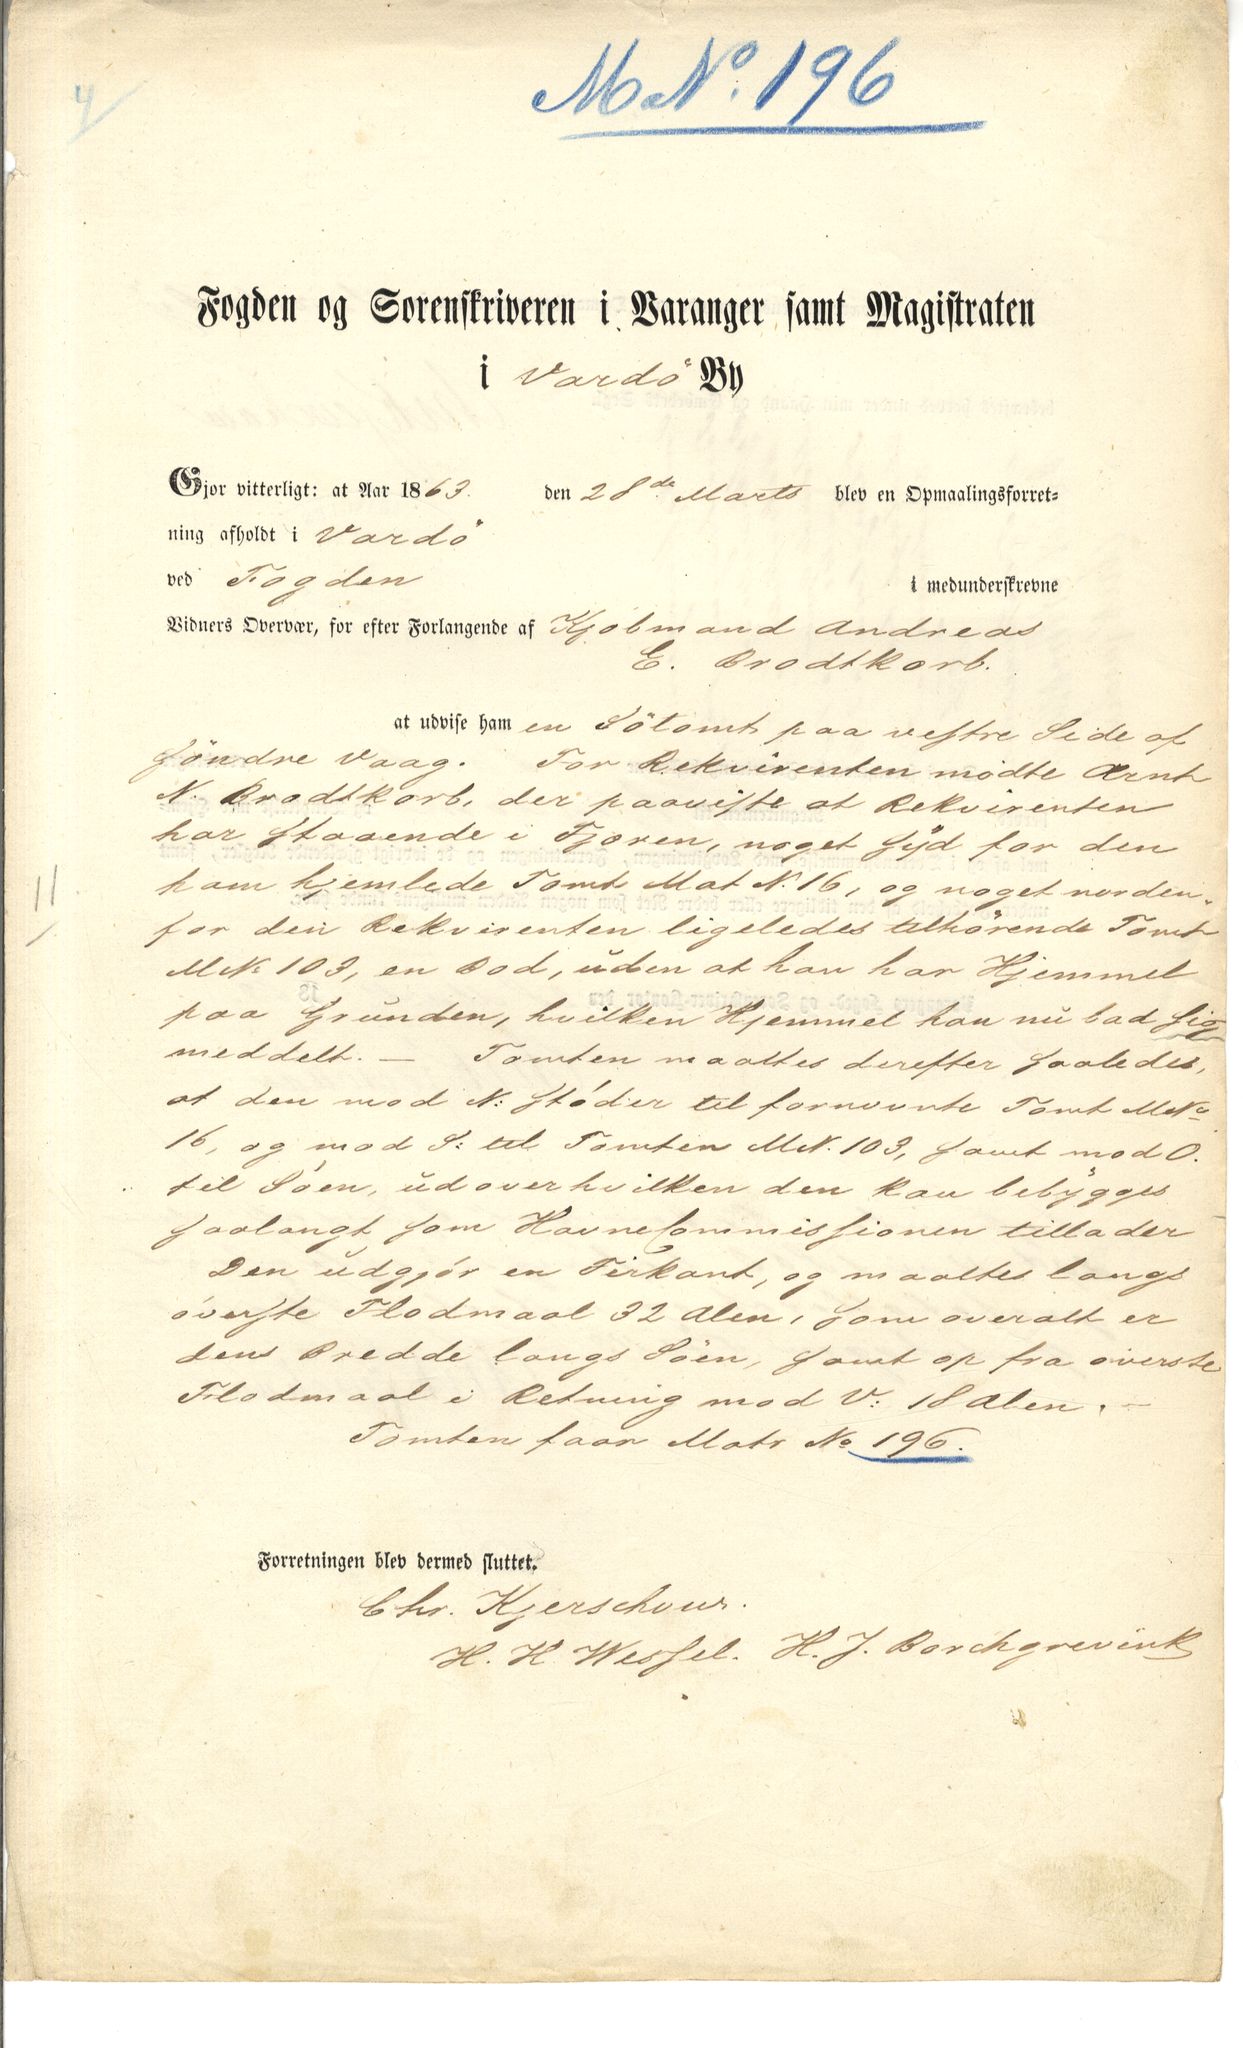 M No. 196
4
Fogden og Sorenskriveren i Varanger samt Magistraten
i Vardö By
Gjor vitterligt: at Aar 1863. den 28de Marts blev en Opmaalingsforret-
ning afholdt i Vardö
ved Fogden i medunderskrevne
Vidners Overvær, for efter Forlangende af Kjøbmand Andreas
E. Brodtkorb.
at udvise ham en Sötomt paa vestre Side af
Söndre Vaag. For Rekvirenten mødte Arnt
N. Brodtkorb, der paaviste at Rekvirenten
har staaende i Fjæren, noget syd for den
ham hjemlede Tomt Mat N. 16, og noget norden-
for den Rekvirenten ligeledes tilhörende Tomt
M N: 103, en Bod, uden at han har Hjemmel
paa Grunden, hvilken Hjemmel han nu bad sig
meddelt. — Tomten maaltes derefter saaledes,
at den mod N: støder til fornævnte Tomt M No
16, og mod S: til Tomten M N. 103, samt mod O.
til Søen, udover hvilken den kan bebygges
saalangt som HavneCommissionen tillader
Den udgjør en Firkant, og maaltes langs
øverste Flodmaal 32 Alen, som overalt er
dens Bredde langs Søen, samt op fra øverste
Flodmaal i Retning mod V: 18 Alen. —
Tomten faar Matr No 196.
11
Forretningen blev dermed sluttet.
Chr. Kjerschow.
H. H. Wessel. H. J. Borchgrevink